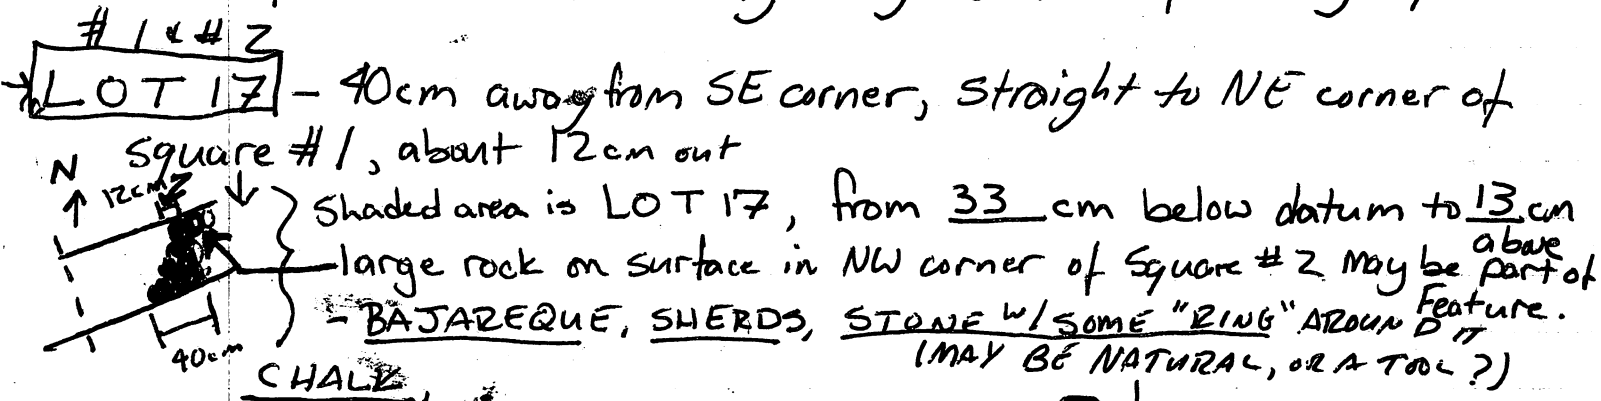 #1 & #2
LOT 17 - 40cm away from SE corner, straight to NE corner of
square #1, about 12cm out
N
12cm
Shaded area is LOT 17, from 33 cm below datum to 13 cm
above
large rock on surface in NW corner of Square #2 may be part of
Feature.
- BAJAREQUE, SHERDS, STONE W/ SOME "RING" AROUND IT
40cm
(MAY BE NATURAL, OR A TOOL?)
CHALK